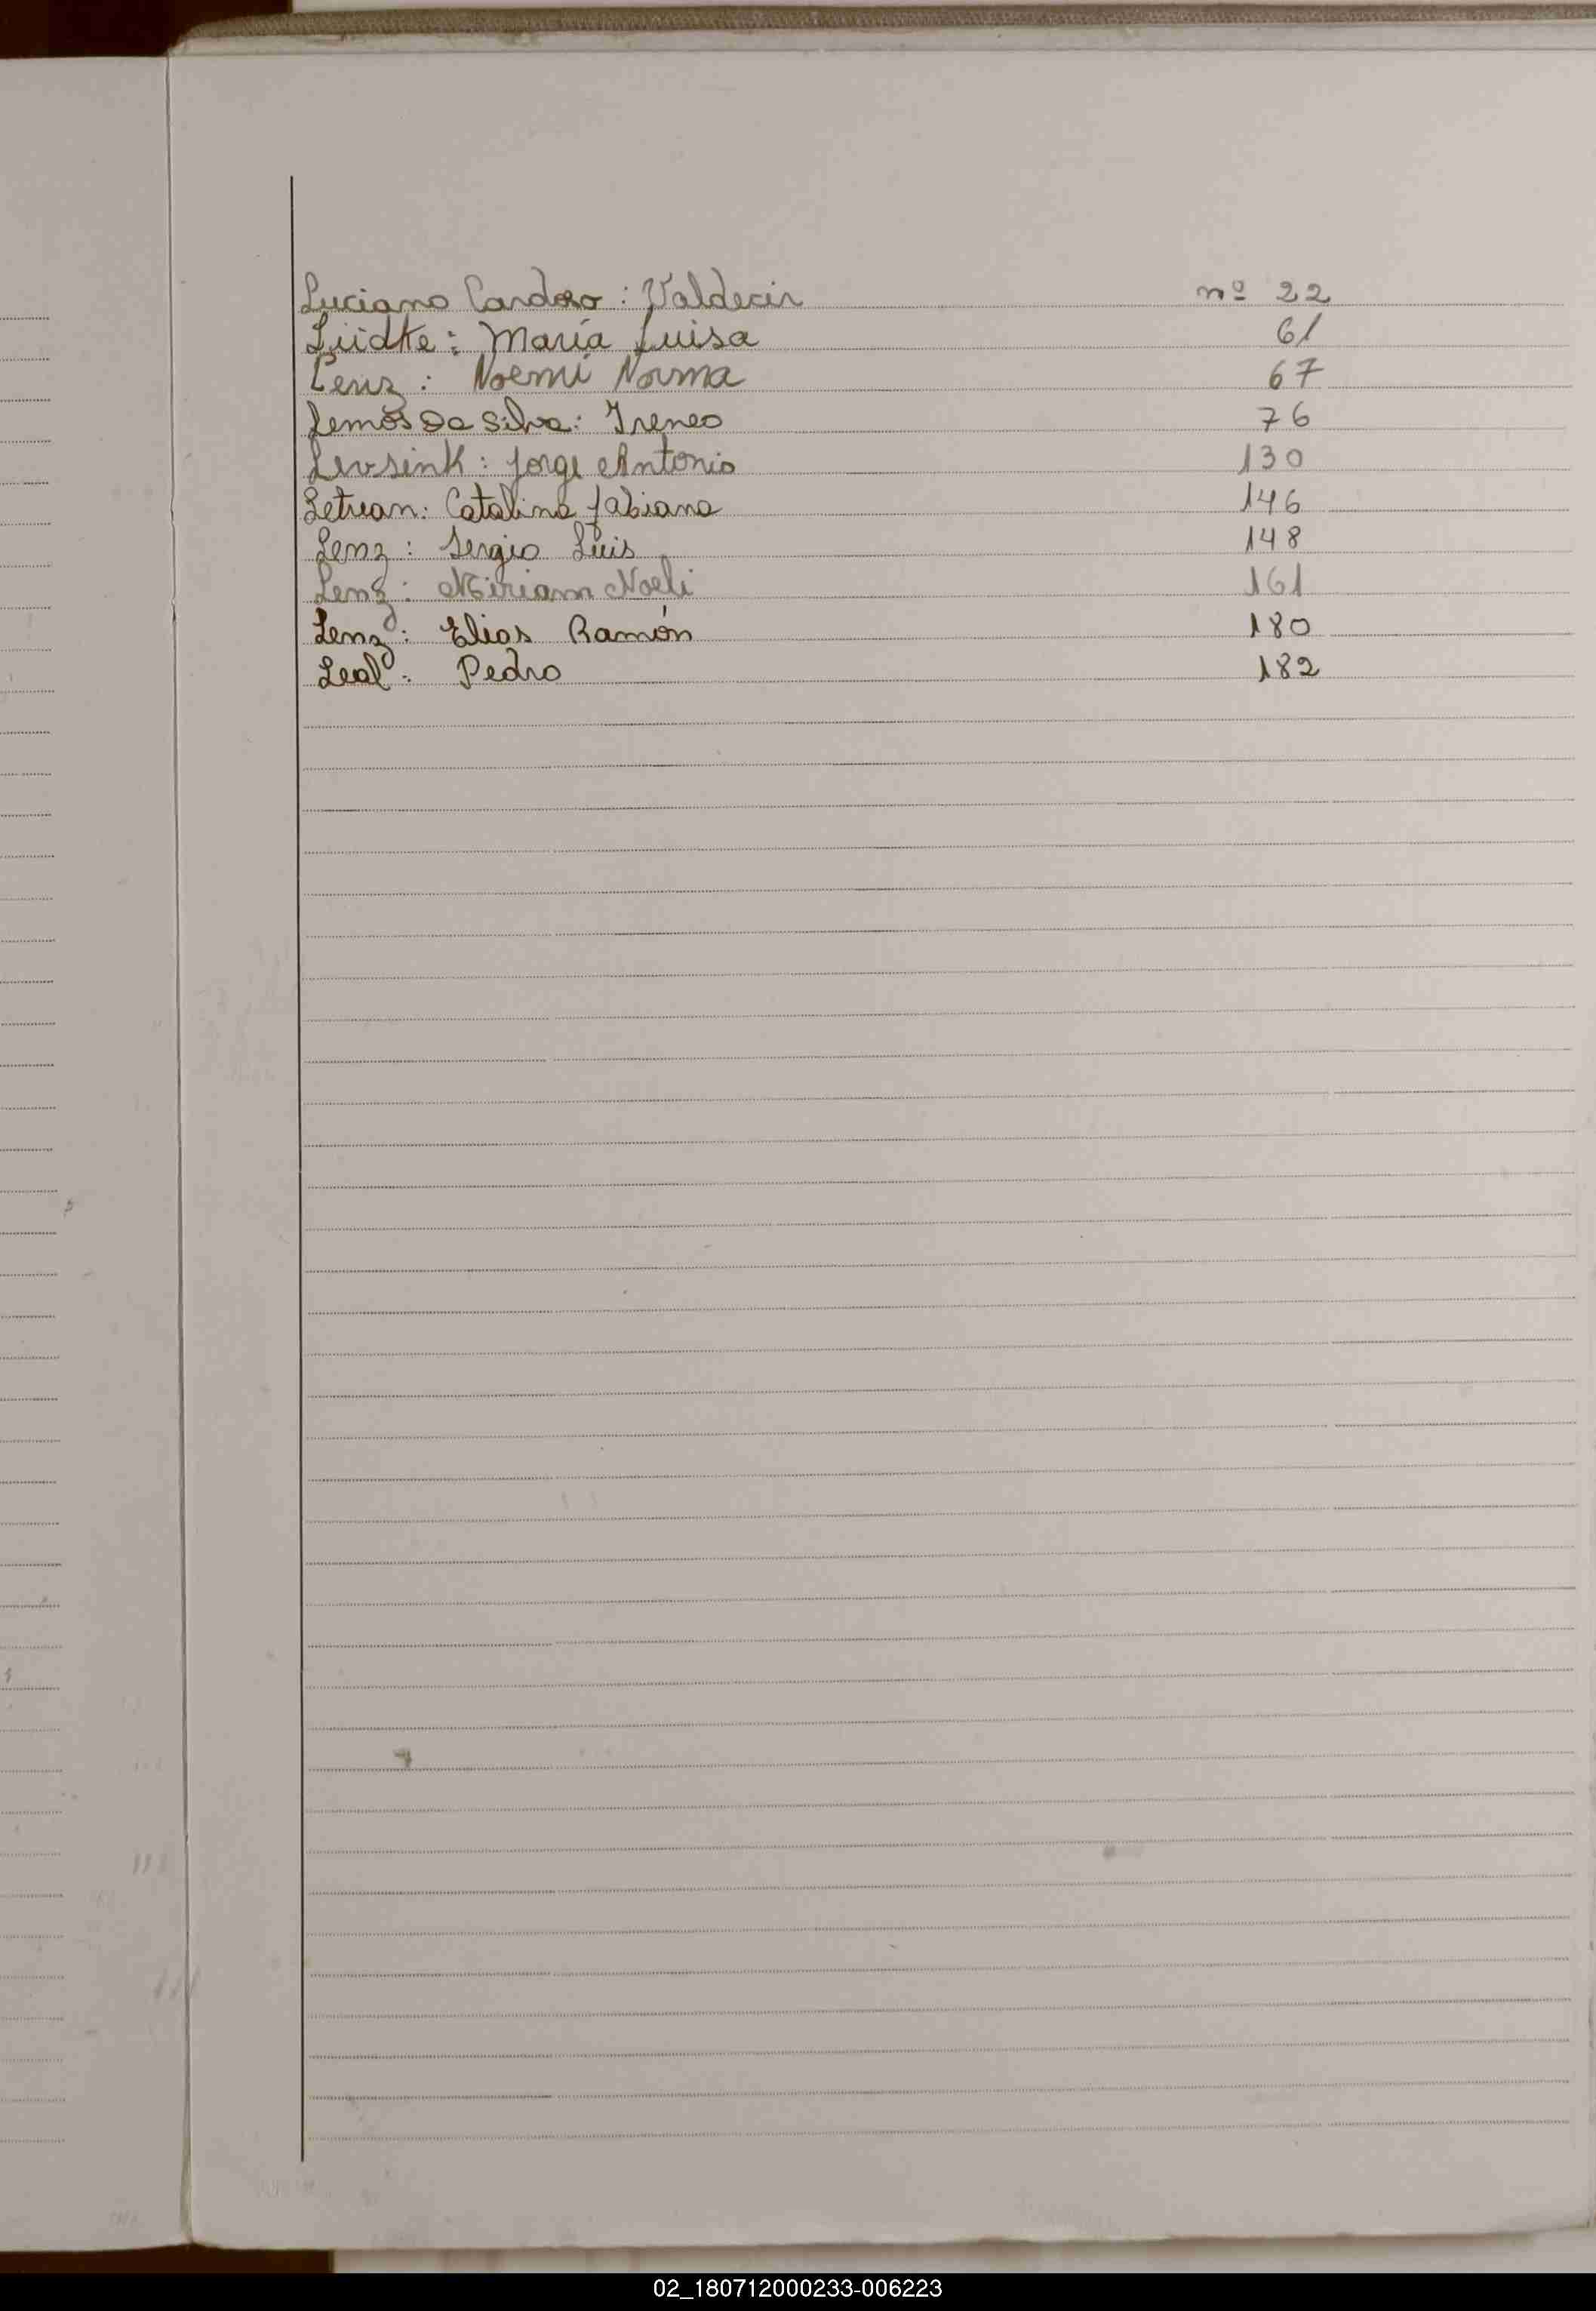 Luciano Cardoso: Valdecir nº 22
Lüdke: María Luisa 61
Lenz: Noemí Norma 67
Lemos Da Silva: Ireneo 76
Levsink: Jorge Antonio 130
Letrean: Catalina Fabiana 146
Lenz: Sergio Luis 148
Lenz: Miriam Noeli 161
Lenz: Elias Ramón 180
Leal: Pedro 182
02_180712000233-006223